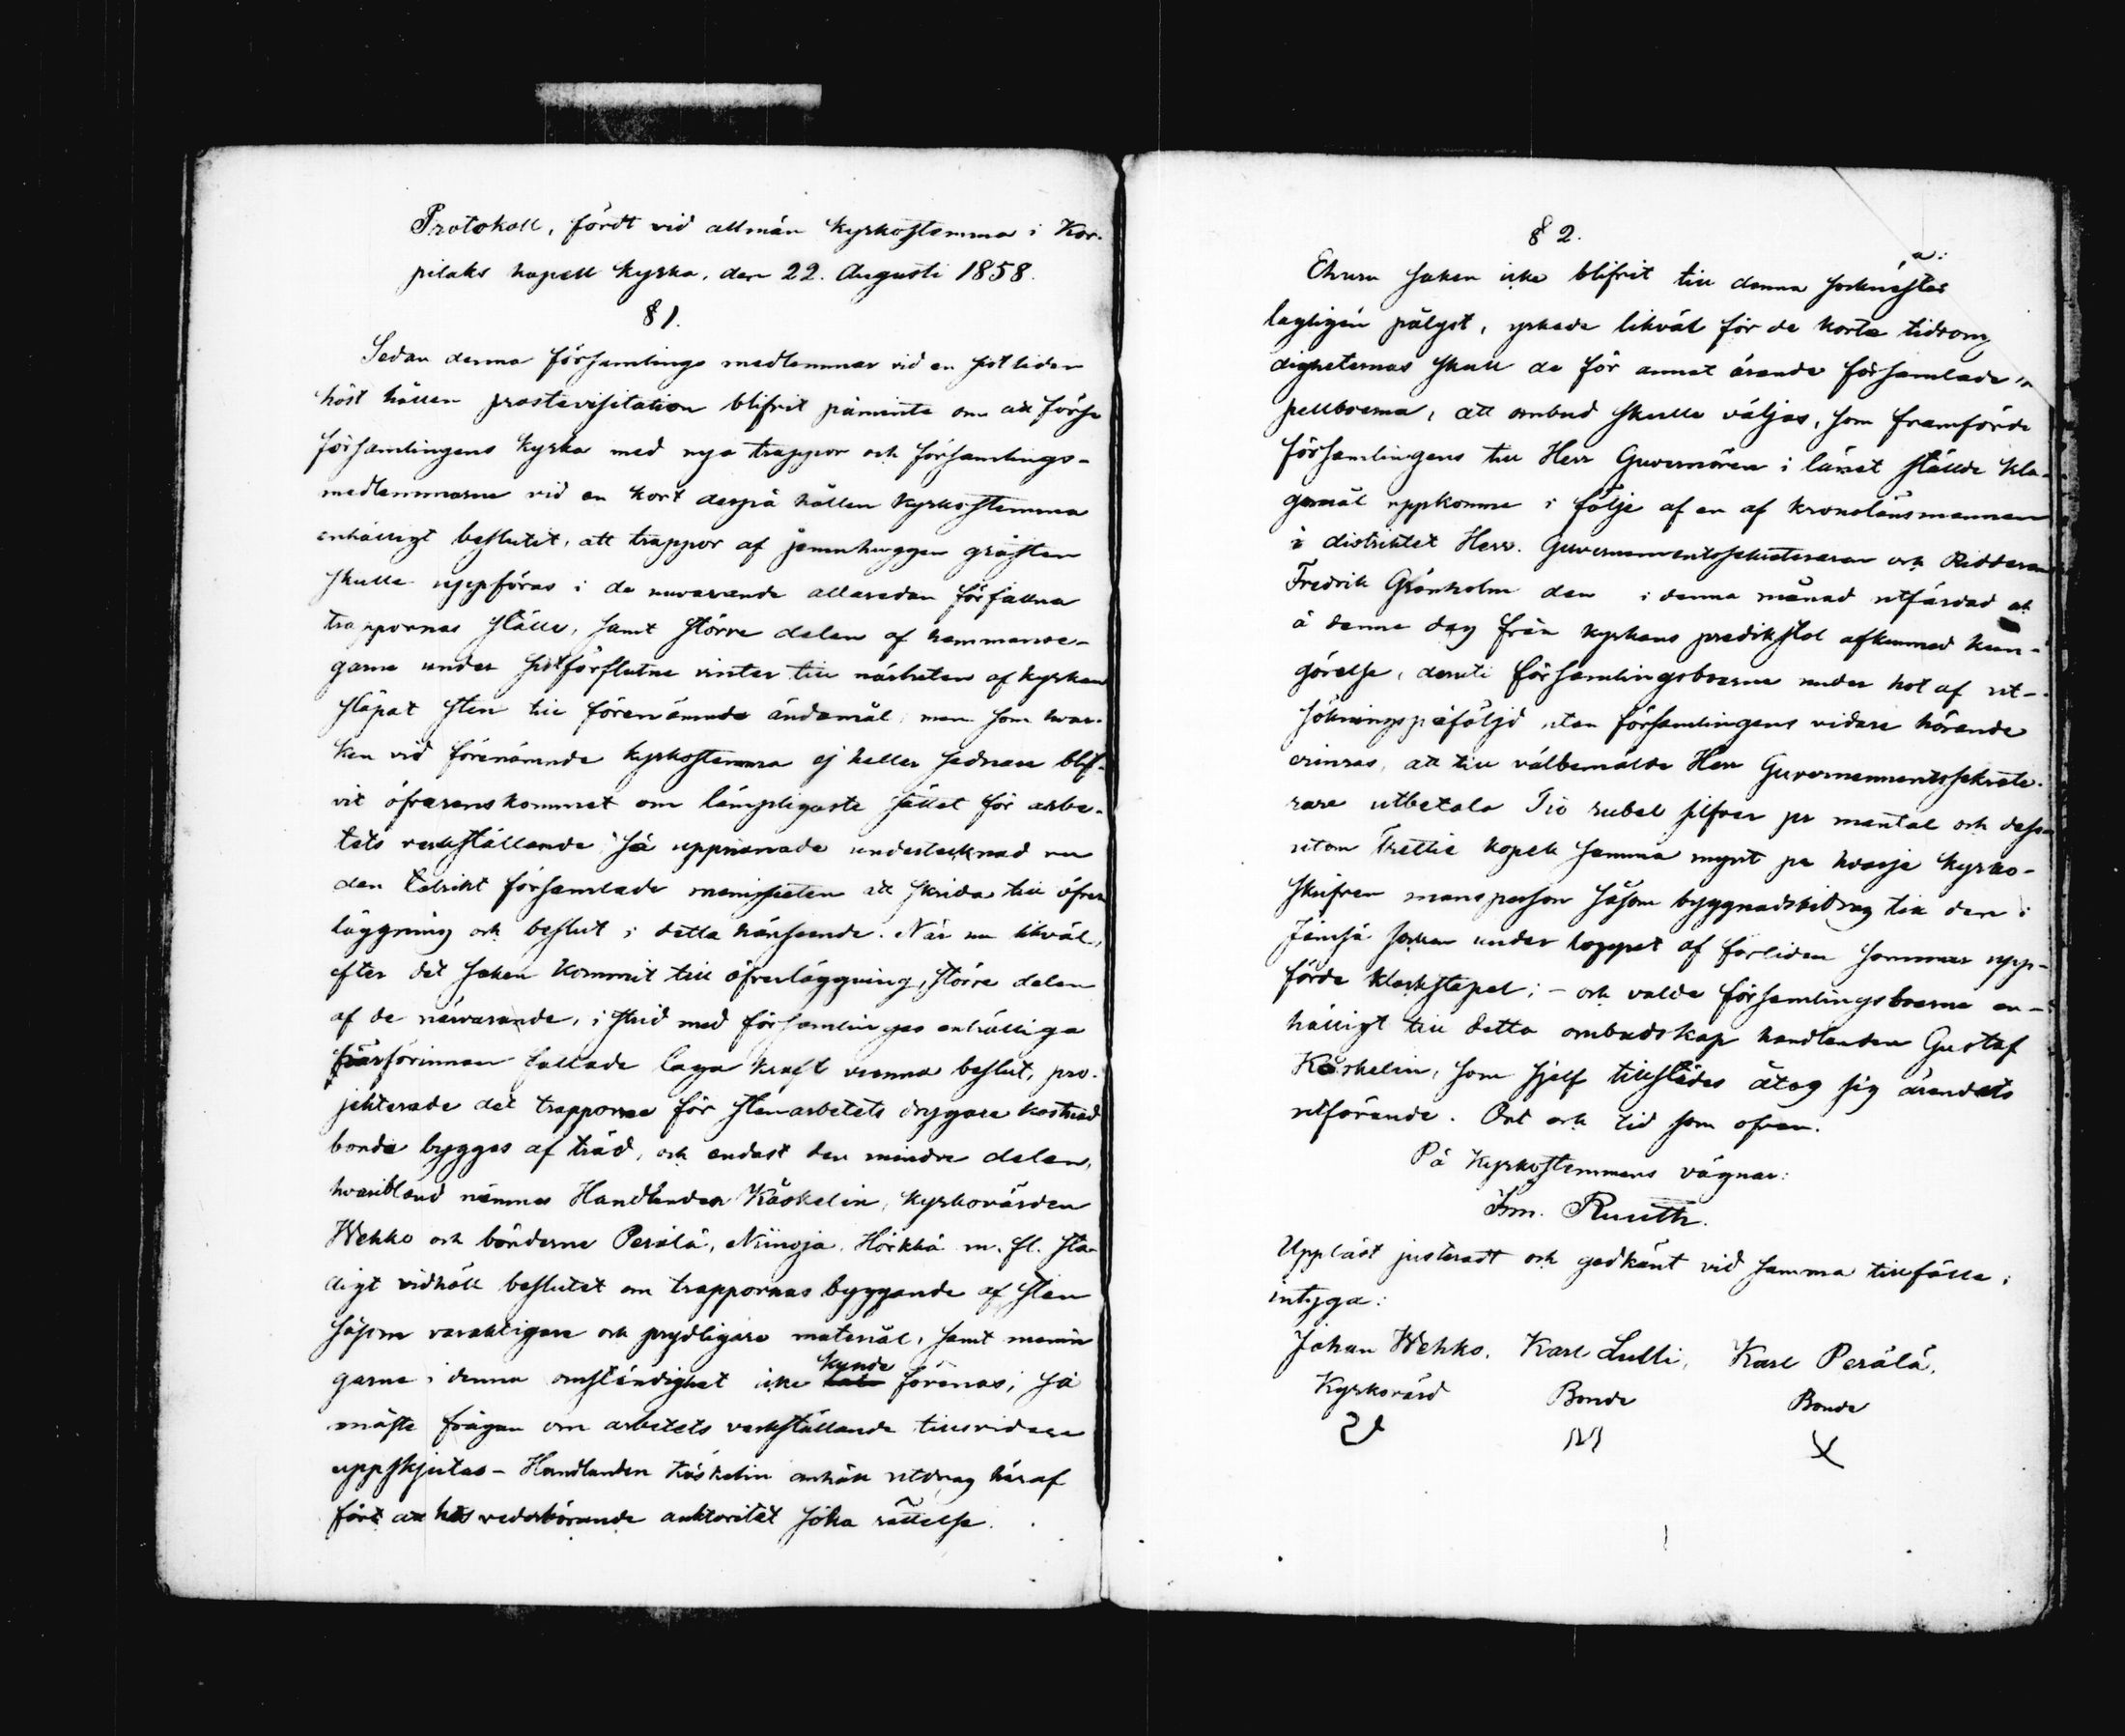 Protokoll, fördt vid allmän kyrkostemma i Kor-
pilaks kapell kyrka, den 22. Augusti 1858.
§ 1.
Sedan denna församlings medlemmar vid en sistliden
höst hållen prostevisitation blifvit påminte om att förse
församlingens kyrka med nya trappor och församlings-
medlemmarne vid en kort derpå hållen kyrkostemma
enhälligt beslutit, att trappor af jemnhuggen gråsten
skulle uppföras i de nuvarande allaredan förfallna
trappornas ställe, samt större delen af hemmanse-
garne under sistförflutne vinter till närheten af kyrkan
släpat sten till förenämnde ändamål, men som hvar-
ken vid förenämnde kyrkostemma ej heller sednare blif-
vit öfverenskommet om lämpligaste sättet för arbe-
tets verkställande; så uppmanade undertecknad nu
den talrikt församlade menigheten att skrida till öfver-
läggning och beslut i detta hänseende. När nu likväl,
efter det saken kommit till öfverläggning, större delen
af de närvarande, i strid med församlingens enhälliga
härförinnan fattade laga kraft vunna beslut, pro-
jekterade det trapporna för stenarbetets drygare kostnad
borde bygges af träd, och endast den mindre delen,
hvaribland nämnas Handlanden Kåskelin, kyrkovärden
Wehko och bönderne Perälä, Niinoja, Hörkkö m. fl. stän-
digt vidhöll beslutet om trappornas byggande af sten
såsom varaktigare och prydligare material, samt menin
garne i denna omständighet icke kunde förenas; så
måste frågan om arbetets verkställande tillsvidare
uppskjutas – Handlanden Kåskelin anhöll utdrag häraf
för att hos vederbörande auktoritet söka rättelse.
§ 2.
Ehuru saken icke blifvit till denna sockne-
lagligen pålyst, yrkade likväl för de korta tidsom
digheternas skull de för annat ärende församlade ka
pellboerna, att ombud skulle väljas, som framförde
församlingens till Herr Guvernören i länet ställde kla-
gomål uppkomne i följe af en af kronolänsmannen
i distriktet Herr Guvernementssekreteraren och Riddaren
Fredrik Grönholm den i denna månad utfärdad och
å denna dag från kyrkans predikstol afkunnad kun-
görelse, deruti församlingsboerne under hot af ut-
sökningspåföljd utan församlingens vidare hörande
erinras, att till välbemälde Herr Guvernementssekrete-
rare utbetala Tio rubel silfver pr mantal och dess-
utom Trettio kopek samma mynt pr hvarje kyrko-
skrifven mansperson såsom byggnadsbidrag till den i
Jämsä socken under loppet af förliden sommar upp-
förde klockstapel; – och valde församlingsboerne en-
hälligt till detta ombudskap handlanden Gustaf
Kåskelin, som sjelf tillstädes åtog sig ärendets
utförande. Ort och tid som ofvan.
På Kyrkostemmans vägnar:
Imm. Ruuth.
Uppläst justeradt och godkänt vid samma tillfälle,
intyga:
Johan Wehko, Karl Lulli, Karl Perälä,
Kyrkovärd Bonde Bonde